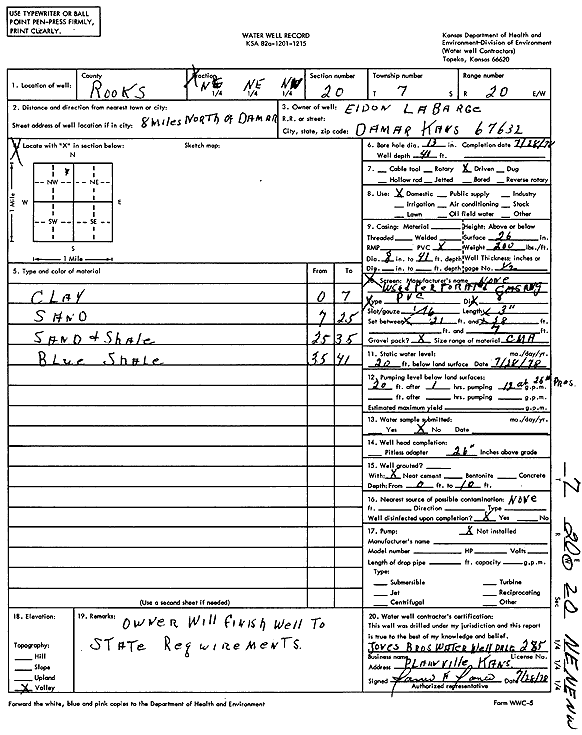 USE TYPEWRITER OR BALL
POINT PEN-PRESS FIRMLY,
PRINT CLEARLY.
WATER WELL RECORD
KSA 82a-1201-1215
Kansas Department of Health and
Environment-Division of Environment
(Water well Contractors)
Topeka, Kansas 66620
1. Location of well: County ROOKS Fraction NE 1/4 NE 1/4 NW 1/4 Section number 20 Township number T 7 S Range number R 20 E/W
2. Distance and direction from nearest town or city:
Street address of well location if in city: 8 Miles NORTH of DAMAR
3. Owner of well: ELDON LABARGE
R.R. or street:
City, state, zip code: DAMAR KANS 67632
4. Locate with "X" in section below: Sketch map:
N
X
NW NE
W E
SW SE
S
1 Mile
1 Mile
5. Type and color of material From To
CLAY 0 7
SAND 7 25
SAND & Shale 25 35
BLUE SHALE 35 41
(Use a second sheet if needed)
6. Bore hole dia. 13 in. Completion date 7/28/78
Well depth 41 ft.
7. Cable tool Rotary X Driven Dug
Hollow rod Jetted Bored Reverse rotary
8. Use: X Domestic Public supply Industry
Irrigation Air conditioning Stock
Lawn Oil field water Other
9. Casing: Material Height: Above or below
Threaded Welded Surface 26 in.
RMP PVC X Weight 200 lbs./ft.
Dia. 8 in. to 41 ft. depth Wall Thickness: inches or
Dia. in. to ft. depth gage No. 1/2
10. Screen: Manufacturer's name NONE
USED PERFORATED CASANG
Type PVC Dia. 8
Slot/gauze 1/16 Length 3"
Set between 21 ft. and 38 ft.
ft. and ft.
Gravel pack? X Size range of material CMA
11. Static water level: mo./day/yr.
20 ft. below land surface Date 7/28/78
12. Pumping level below land surfaces:
20 ft. after 1 hrs. pumping 12 at 26" g.p.m.
ft. after hrs. pumping g.p.m.
Estimated maximum yield g.p.m.
13. Water sample submitted: mo./day/yr.
Yes X No Date
14. Well head completion:
Pitless adapter 26" Inches above grade
15. Well grouted?
With: X Neat cement Bentonite Concrete
Depth: From 0 ft. to 10 ft.
16. Nearest source of possible contamination: NONE
ft. Direction Type
Well disinfected upon completion? X Yes No
17. Pump: X Not installed
Manufacturer's name
Model number HP Volts
Length of drop pipe ft. capacity g.p.m.
Type:
Submersible Turbine
Jet Reciprocating
Centrifugal Other
18. Elevation:
Topography:
Hill
Slope
Upland
X Valley
19. Remarks: OWNER Will finish Well To
STATE Requirements.
20. Water well contractor's certification:
This well was drilled under my jurisdiction and this report
is true to the best of my knowledge and belief.
JONES BROS WATER Well DRLG 285
Business name License No.
Address PLAINVILLE, KANS.
Signed Date 7/28/78
Authorized representative
Forward the white, blue and pink copies to the Department of Health and Environment Form WWC-5
T 7 R 20 W Sec 20 NE NE NW 1/4 1/4 1/4